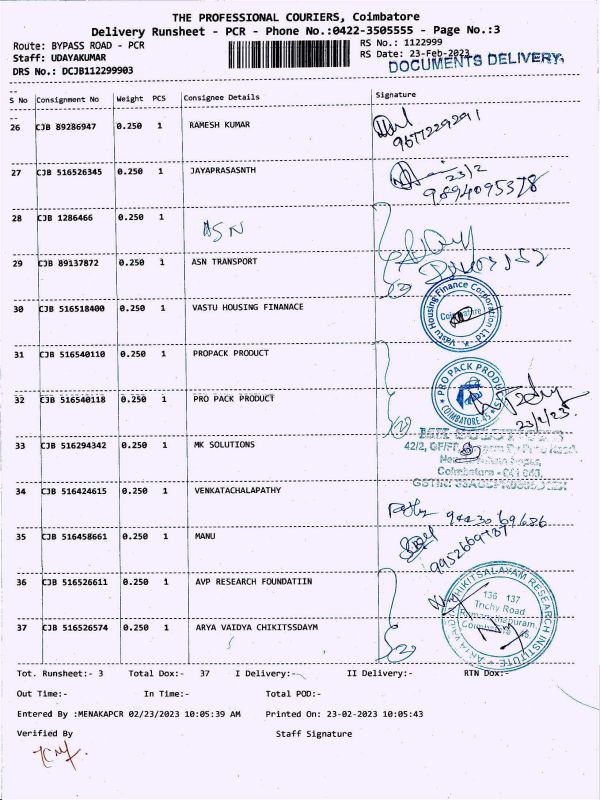 THE PROFESSIONAL COURIERS, Coimbatore
Delivery Runsheet - PCR - Phone No.:0422-3505555 - Page No.:3
Route: BYPASS ROAD - PCR RS No.: 1122999
Staff: UDAYAKUMAR RS Date: 23-Feb-2023
DRS No.: DCJB112299903 DOCUMENTS DELIVERY.
S No Consignment No Weight PCS Consignee Details Signature
26 CJB 89286947 0.250 1 RAMESH KUMAR
27 CJB 516526345 0.250 1 JAYAPRASASNTH 23/2
9894095378
28 CJB 1286466 0.250 1
ASN
29 CJB 89137872 0.250 1 ASN TRANSPORT
30 CJB 516518400 0.250 1 VASTU HOUSING FINANACE
Vastu Housing Finance Corporation Ltd
Coimbatore
31 CJB 516540110 0.250 1 PROPACK PRODUCT
PRO PACK PRODUCTS
COIMBATORE-45
32 CJB 516540118 0.250 1 PRO PACK PRODUCT
23/2/23
33 CJB 516294342 0.250 1 MK SOLUTIONS
Coimbatore
34 CJB 516424615 0.250 1 VENKATACHALAPATHY
9443069686
35 CJB 516458661 0.250 1 MANU
36 CJB 516526611 0.250 1 AVP RESEARCH FOUNDATIIN
ARYA VAIDYA CHIKITSALAYAM RESEARCH INSTITUTE
136 137
Trichy Road
Ramanathapuram,
Coimbatore 45
37 CJB 516526574 0.250 1 ARYA VAIDYA CHIKITSSDAYM
Tot. Runsheet:- 3 Total Dox:- 37 I Delivery:- II Delivery:- RTN Dox:-
Out Time:- In Time:- Total POD:-
Entered By :MENAKAPCR 02/23/2023 10:05:39 AM Printed On: 23-02-2023 10:05:43
Verified By Staff Signature